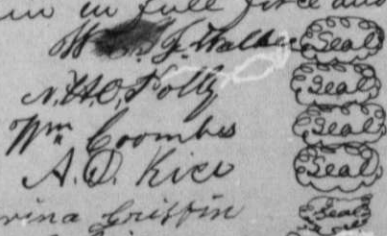 in full force and
W. Walker Seal
N. H. O. Polly Seal
Wm Coombes Seal
A. D. Kice Seal
Griffin Seal